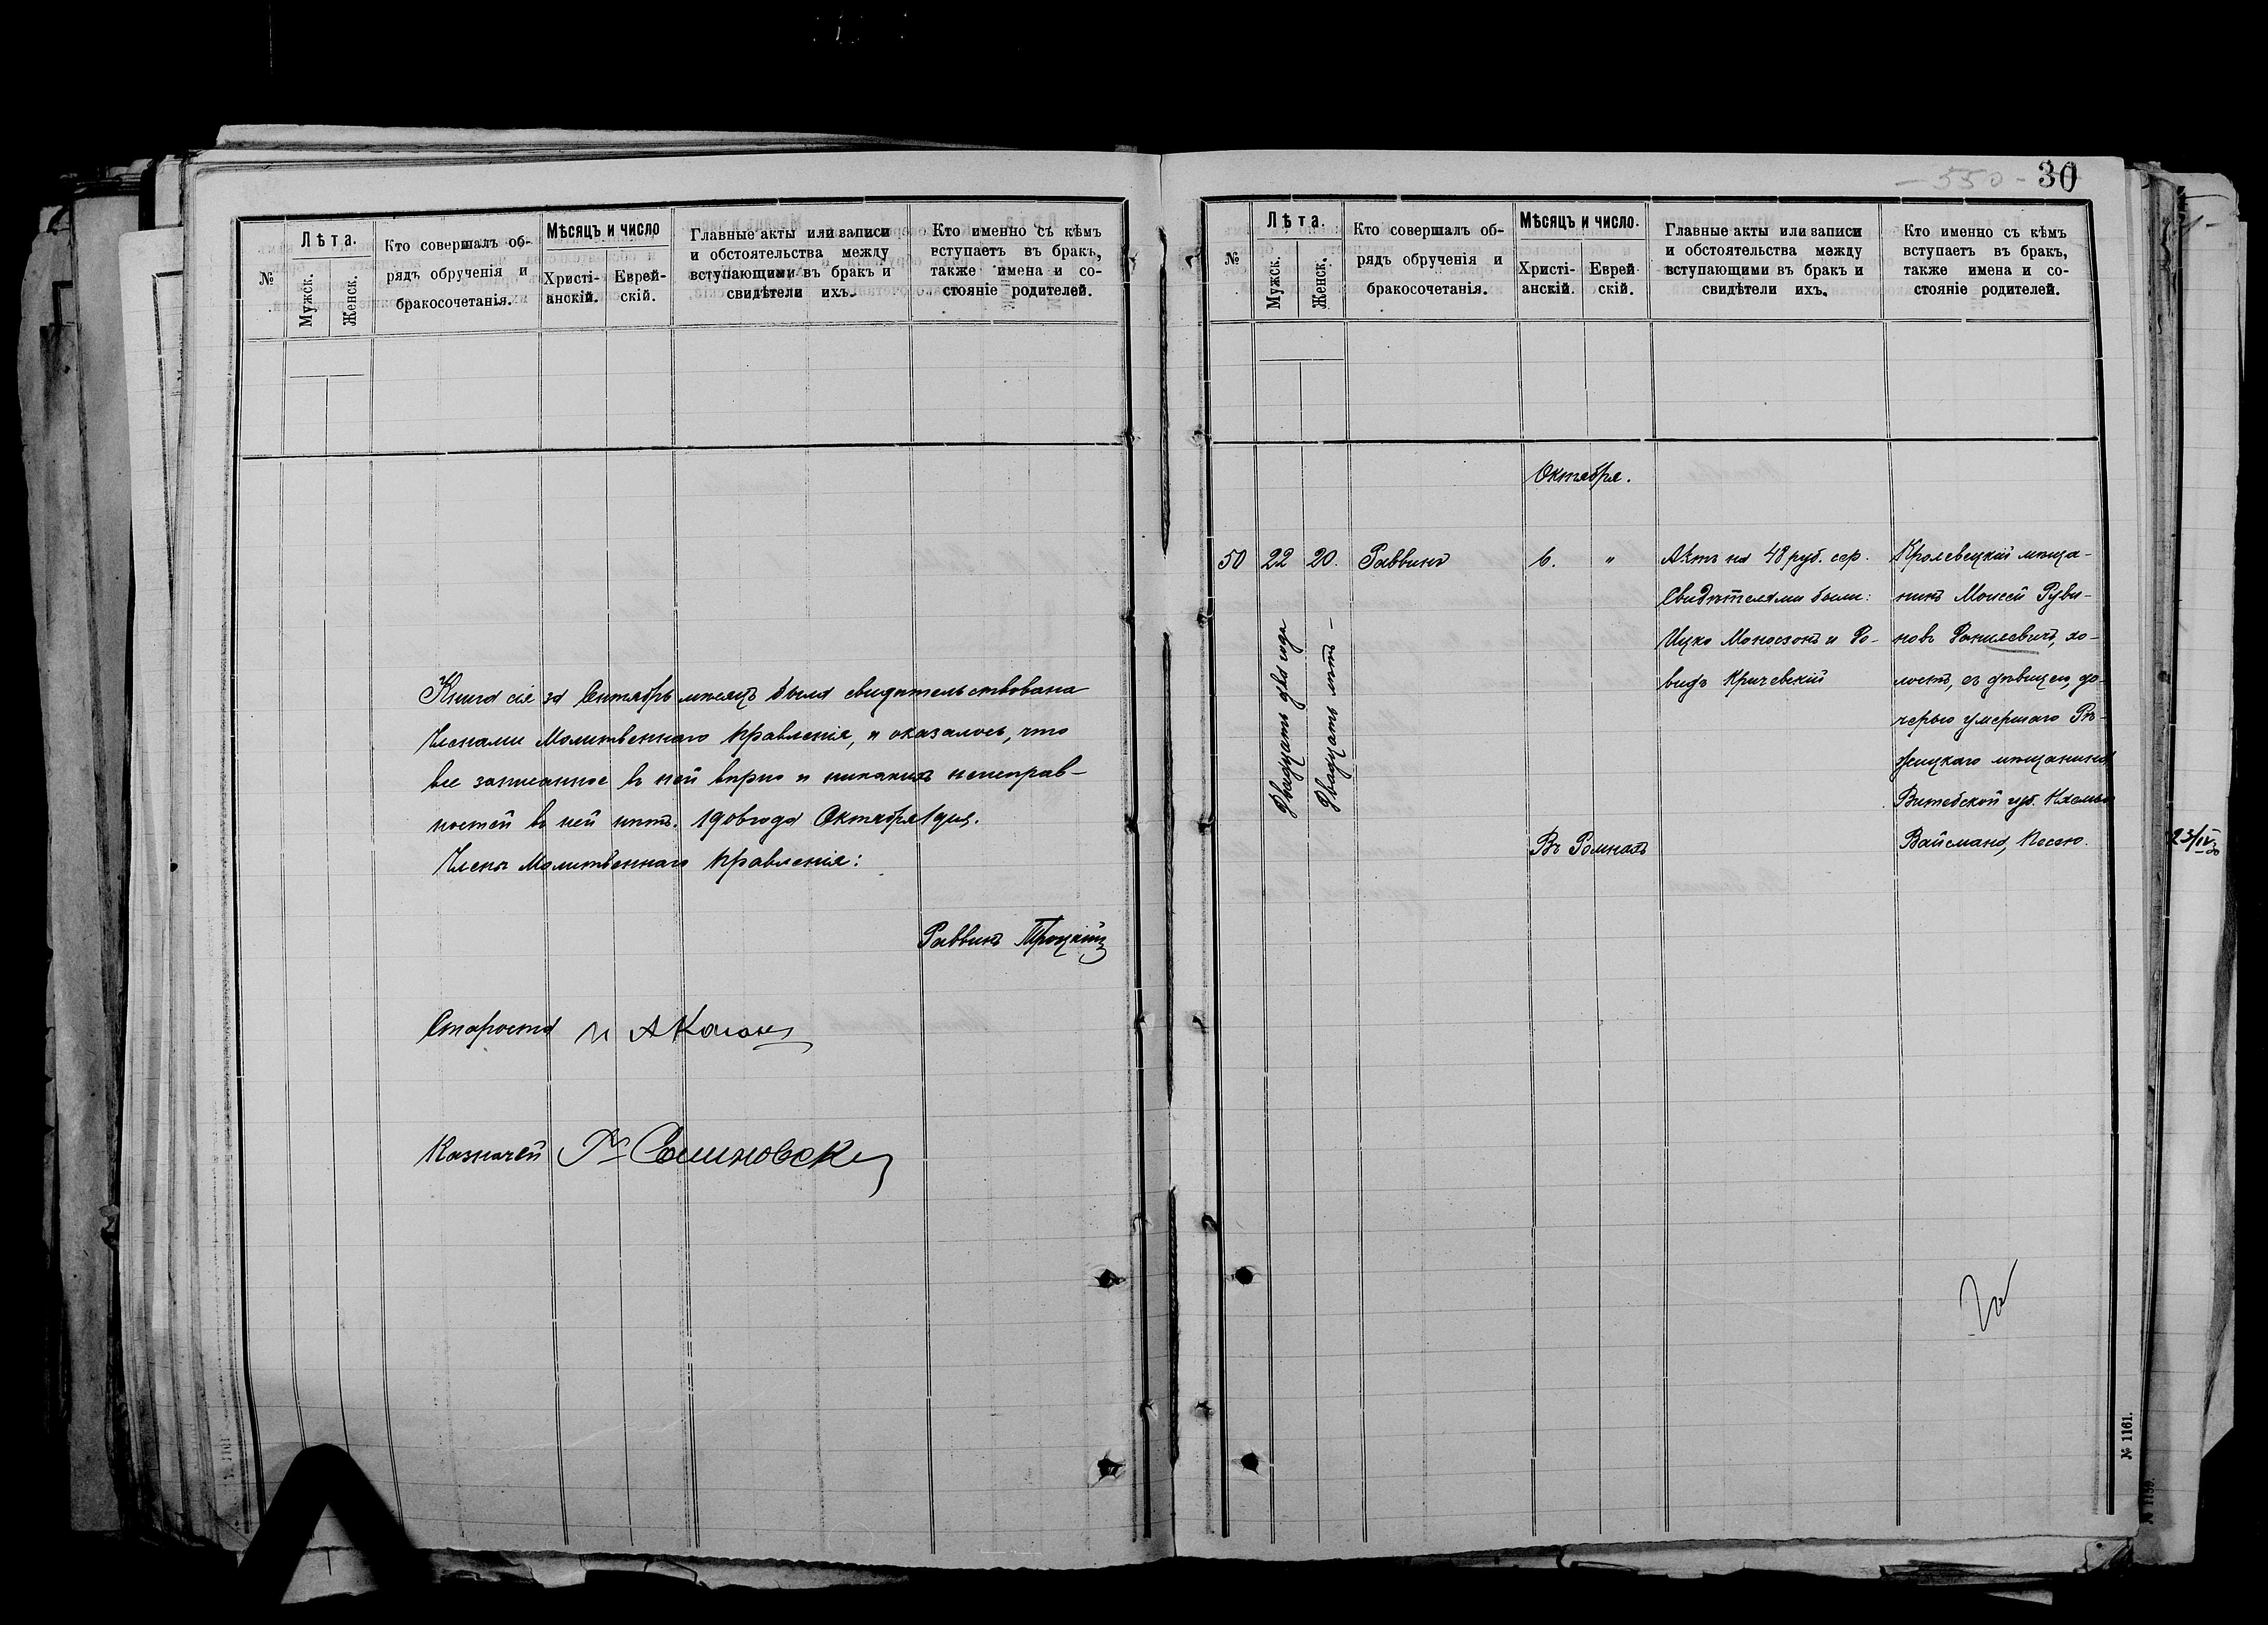 №
Лѣта.
Мужск.
Женск.
Кто совершалъ об-
рядъ обрученія и
бракосочетанія.
Мѣсяцъ и число
Христі-
анскій.
Еврей-
скій.
Главные акты или записи
и обстоятельства между
вступающими въ бракъ и
свидѣтели ихъ.
Кто именно съ кѣмъ
вступаетъ въ бракъ,
также имена и со-
стояніе родителей.
Книга сія за Сентябрь мѣсяцъ была свидѣтельствована
Членами Молитвеннаго Правленія, и оказалось, что
все записанное въ ней вѣрно и никакихъ неисправ-
ностей въ ней нѣтъ. 1906 года Октября 1 дня.
Члены Молитвеннаго Правленія:
Раввинъ Троцкій
Староста И А Каганъ
Казначей
- 550 - 30
№
Лѣта.
Мужск.
Женск.
Кто совершалъ об-
рядъ обрученія и
бракосочетанія.
Мѣсяцъ и число.
Христі-
анскій.
Еврей
скій.
Главные акты или записи
и обстоятельства между
вступающими въ бракъ и
свидѣтели ихъ.
Кто именно съ кѣмъ
вступаетъ въ бракъ,
также имена и со-
стояніе родителей.
Октября.
50
22
20.
Двадцать два года
Двадцать лѣтъ -
Раввинъ
6.
"
Въ Ромнахъ
Актъ на 48 руб. сер.
Свидѣтелями были:
Ицко Моносзонъ и До-
видъ Кричевскій
Кролевецкій мѣща-
нинъ Моисей Руви-
новъ Данилевичъ, хо-
лостъ, съ дѣвицею, до-
черью умершаго Рѣ-
жицкаго мѣщанина
Витебской губ.
Вайсмана, Песею.
23/IV 30
№ 1161.
№ 1159.